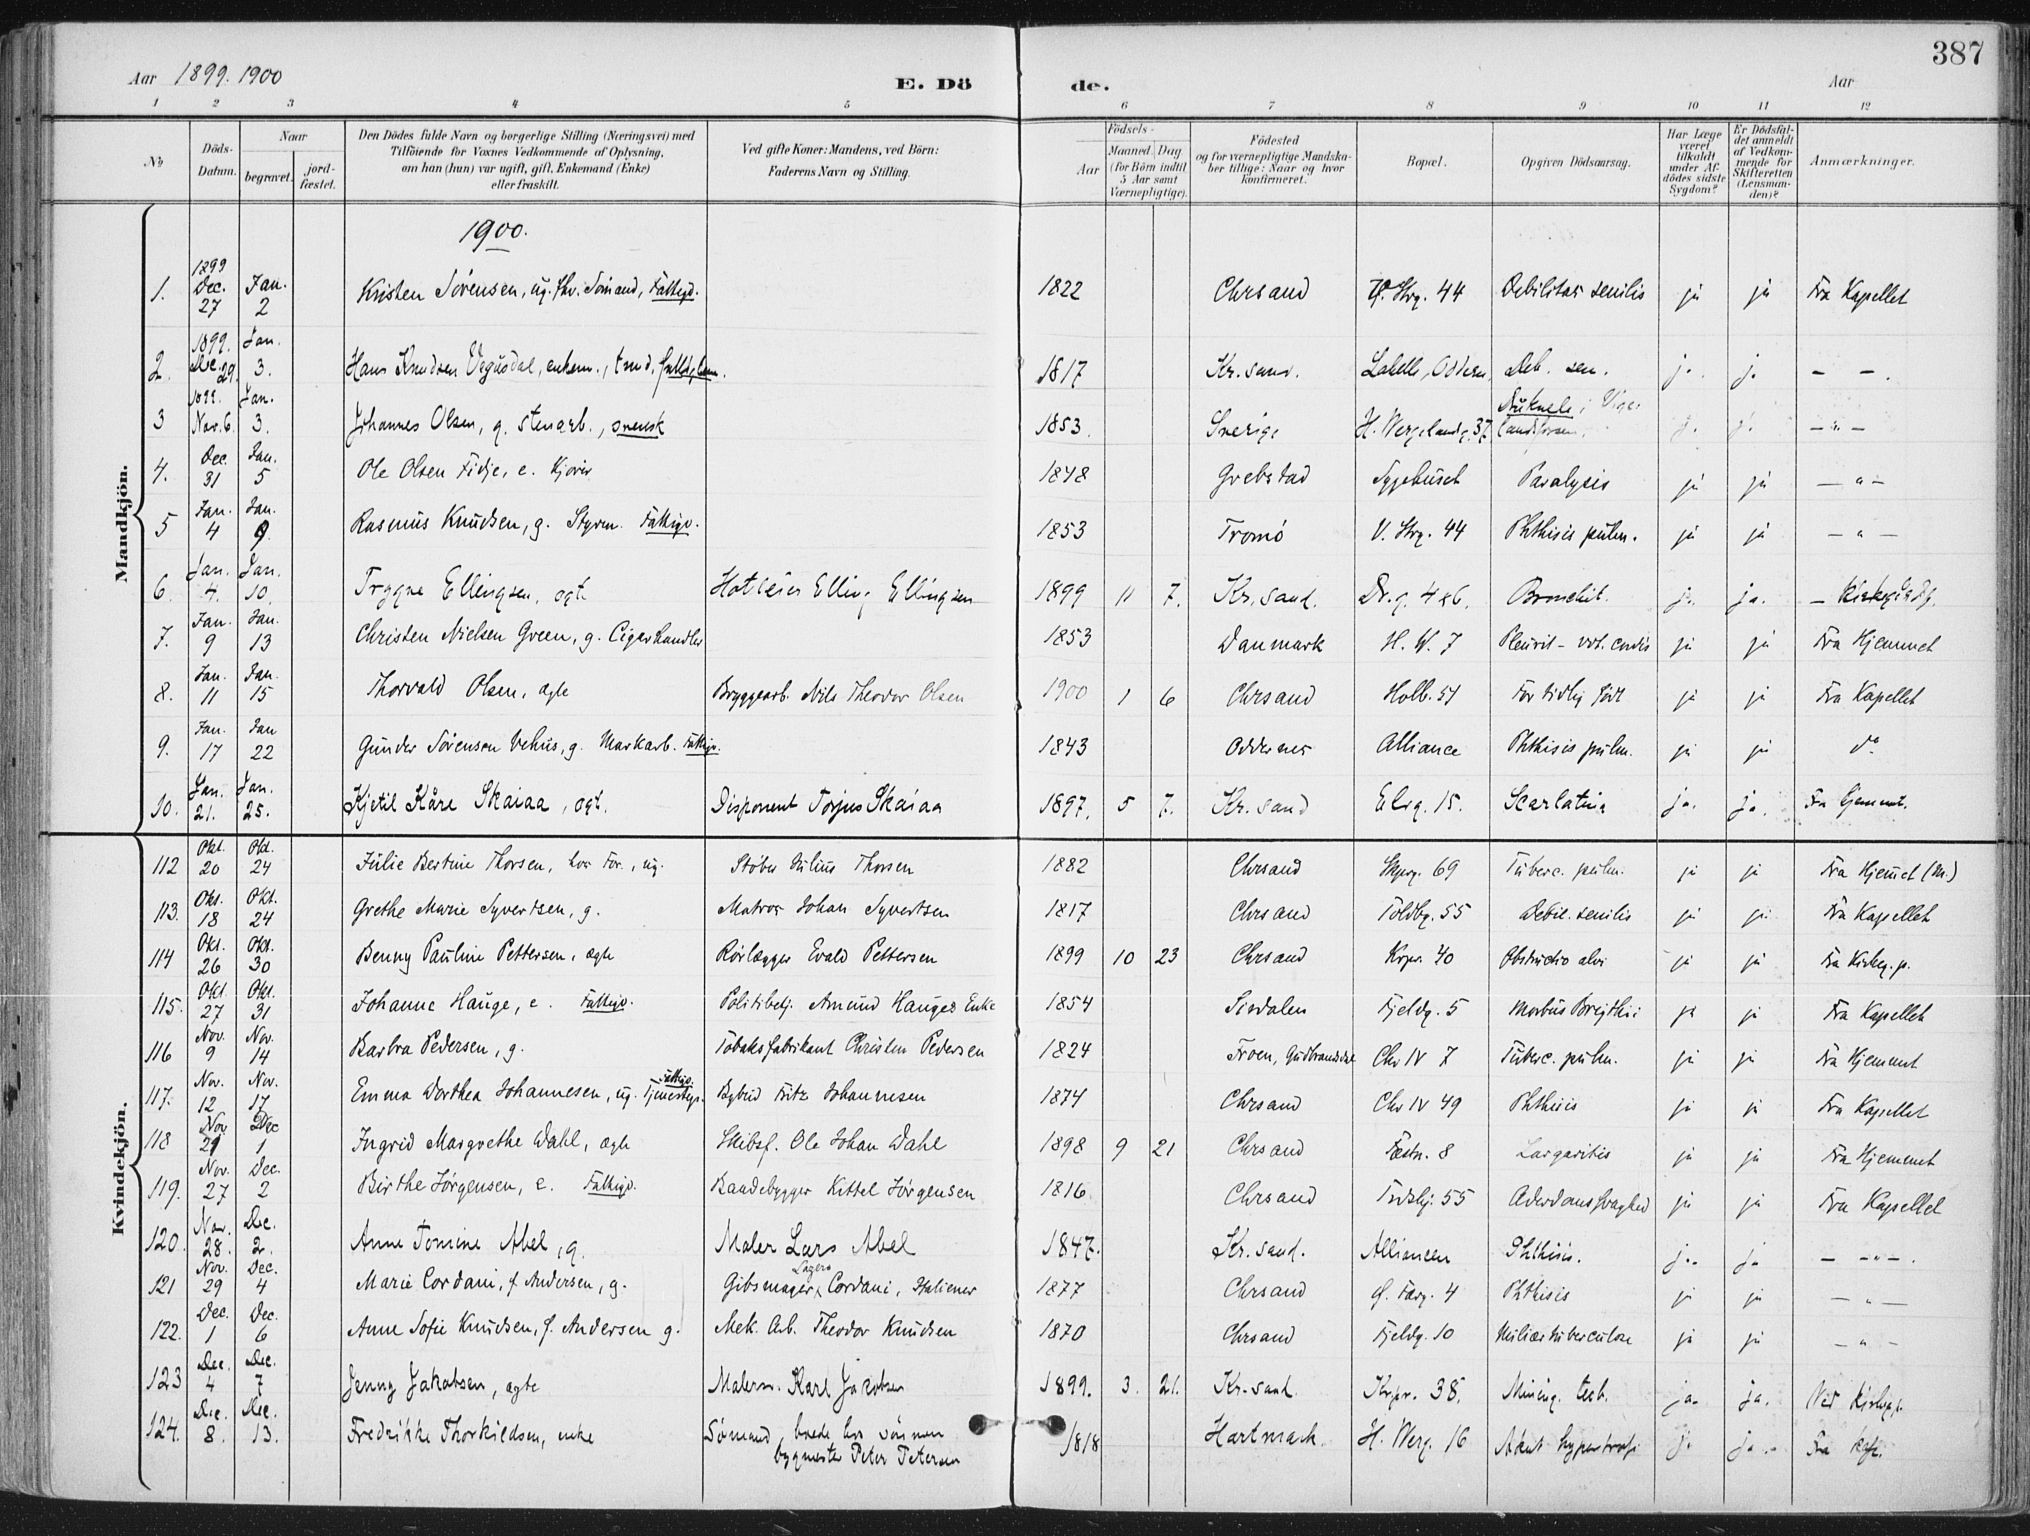 387
Aar 1899. 1900
E. Dö
de.
Aar
1 2 3 4 5 6 7 8 9 10 11 12
No
Döds-Datum.
Naar
begravet.
jordfæstet.
Den Dödes fulde Navn og borgerlige Stilling (Næringsvei) med
Tilföiende for Voxnes Vedkommende af Oplysning,
om han (hun) var ugift, gift, Enkemand (Enke)
eller fraskilt.
Ved gifte Koner: Mandens, ved Börn:
Faderens Navn og Stilling.
Födsels-
Aar
Maaned. Dag
(for Börn indtil
5 Aar samt
Værnepligtige).
Födested
og for værnepligtige Mandskaber tillige: Naar og hvor
konfirmeret.
Bopæl.
Opgiven Dödsaarsag.
Har Læge
været
tilkaldt
under Afdödes sidste
Sygdom?
Er Dödsfaldet anmeldt
af Vedkommende for
Skifteretten
(Lensmanden)?
Anmærkninger.
Mandkjön.
1900.
1. 1899 Dec. 27 Jan. 2 Kristen Sørensen, ug. fhv. Sømand, Fattigd. 1822 Chrsand 44 Debilitas senilis ja ja Fra Kapellet
2. 1899. Dec. 29. Jan. 3. Hans Knudsen Vegusdal, enkem., 1817 Kr.sand. Oddern. Deb. sen. ja. ja. — — .
3 1899. Nov. 6. Jan. 3. Johannes Olsen, g. stenarb., svensk 1853. Sverige H. Wergelandg. 37. ja. ja. —"—
4. Dec. 31 Jan. 5 Ole Olsen Fidje, e. 1848 Grebstad Sygehuset Paralysis ja ja —"—
5 Jan. 4 Jan. 9 Rasmus Knudsen, g. Styrm. Fattigv. 1853 Tromø V. Strg. 44 Phthisis pulm. ja ja —"—
6. Jan. 4. Jan. 10. Trygve Ellingsen, ægt. Elling Ellingsen 1899 11 7. Kr.sand. Dr.g. Bronchit. ja. ja.
7. Jan. 9 Jan. 13 Christen Nielsen Green, g. Cigarhandler 1853 Danmark H. W. 7 Pleurit – vit. cordis ja ja Fra Hjemmet
8. Jan. 11 Jan. 15 Thorvald Olsen, ægte Bryggearb. Nils Theodor Olsen 1900 1 6 Chrsand Holb. 51 For tidlig født ja ja Fra Kapellet
9. Jan. 17 Jan 22 Gunder Sørensen Vehus, g. Murarb. Fattigv. 1843 Oddernes Alliance Phthisis pulm. ja ja do
10. Jan. 21. Jan. 25. Kjetil Kåre Skaiaa, ægt. Disponent Torjus Skaiaa 1897. 5 7. Kr.sand Elvg. 15. Scarlatina ja. ja. Fra Hjemmet.
Kvindekjön.
112 Okt. 20 Okt. 24 Julie Bertine Thorsen, hos For., ug. Støber Julius Thorsen 1882 Chrsand 69 Tuberc. pulm. ja ja Fra Hjemet (M.)
113. Okt. 18 Okt. 24 Grethe Marie Syvertsen, g. Matros Johan Syvertsen 1817 Chrsand Toldbg. 55 Debil. senilis ja ja Fra Kapellet
114 Okt. 26 Okt. 30 Benny Pauline Pettersen, ægte Rørlægger Evald Pettersen 1899 10 23 Chrsand Krpr. 40 Obstructio alvi ja ja Fra Kirkeg.p.
115. Okt. 27 Okt. 31 Johanne Hauge, e. Fattigv. Politibetj. Amund Hauges Enke 1854 Sirdalen Fjeldg. 5 Morbus Brightii ja ja Fra Kapellet
116 Nov. 9 Nov. 14 Barbra Pedersen, g. Tobaksfabrikant Christen Pedersen 1824 Froen, Gudbrandsdal Chr IV 7 Tuberc. pulm. ja ja Fra Hjemmet
117. Nov. 12 Nov. 17 Emma Dorthea Johannesen, ug. Tjenestep. Fattigv. Bybud Fritz Johannesen 1874 Chrsand Chr IV 49 Phthisis ja ja Fra Kapellet
118 Nov 21 Dec 1 Ingrid Margrethe Wahl, ægte Skibsf. Ole Johan Wahl 1898 9 21 Chrsand Fæstn. 8 ja ja Fra Hjemmet
119. Nov. 27 Dec. 2 Birthe Jørgensen, e. Fattigv. Baadebygger Kittel Jørgensen 1816 Chrsand 55 Alderdomssvaghed ja ja Fra Kapellet
120. Nov. 28. Dec. 2. Anne Tomine Abel, g. Maler Lars Abel 1847. Kr.sand. Alliancen Phthisis. ja. ja —"—.
121 Nov. 29 Dec. 4 Marie Cordani, f Andersen, g. Gibsmager Cordani, Italiener 1877 Chrsand 4 Phthisis ja ja —"—
122. Dec. 1 Dec. 6 Anne Sofie Knudsen, f. Andersen g. Mek. Arb. Theodor Knudsen 1870 Chrsand Fjeldg. 10 Miliærtuberculose ja ja —"—
123 Dec. 4 Dec. 7 Jenny Jakobsen, ægte Malerm. Karl Jacobsen 1899. 3. 21. Kr.sand. Krpr. 38. Mening. tub. ja. ja. Ved Kirkeg.
124. Dec. 8. Dec. 13. Fredrikke Thorkildsen, enke Sømand, boede hos sønnen
bygmester Peter Petersen 1818 Hartmark. H. Werg. 16 ja. Fra Kap.